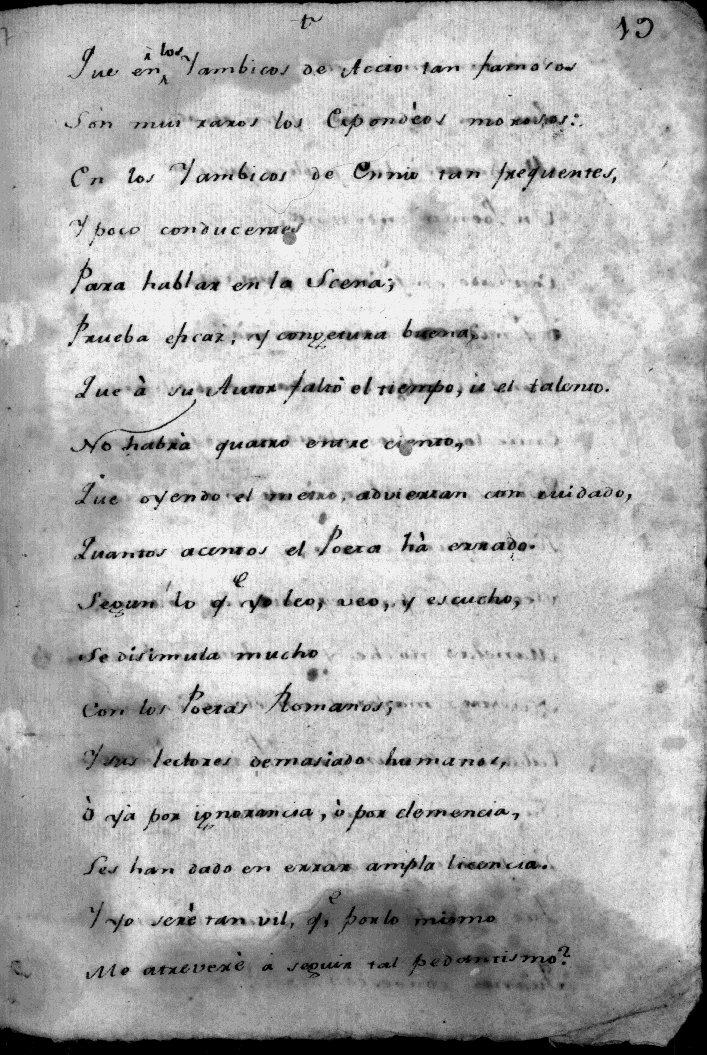 13
Que en los Yambicos de Accio tan famosos
Son mui raros los Espondèos morosos:
En los Yambicos de Ennio tan frequentes,
Y poco conducentes
Para hablar en la Scena;
Prueba eficaz, y congetura buena,
Que à su Autor faltò el tiempo, ù el talento.
No habrà quatro entre ciento,
Que oyendo el metro, adviertan con cuidado,
Quantos acentos el Poeta hà errado.
Segun lo qe yo leo, veo, y escucho,
Se disimula mucho
Con los Poetas Romanos;
Y sus lectores demasiado humanos,
Ò ya por ignorancia, ò por clemencia,
Les han dado en errar ampla licencia.
Y yo serè tan vil, qe por lo mismo
Me atreverè à seguir tal pedantismo?